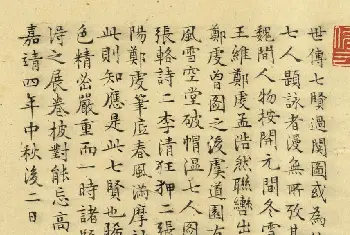 世傳七賢過関圖或為竹
七人題詠者漫無所攷其
魏間人物按開元間冬雪
王維鄭虔孟浩然聯轡出
鄭虔曽圖之後虞道園有
風雪空堂破帽温七人圖
張輅詩二李清狂狎二張
陽鄭虔筆底春風滿摩詰
此則知應是此七賢也
色精密嚴重而一時諸賢
潯之展卷披對能忘高
嘉靖四年中秋後二日